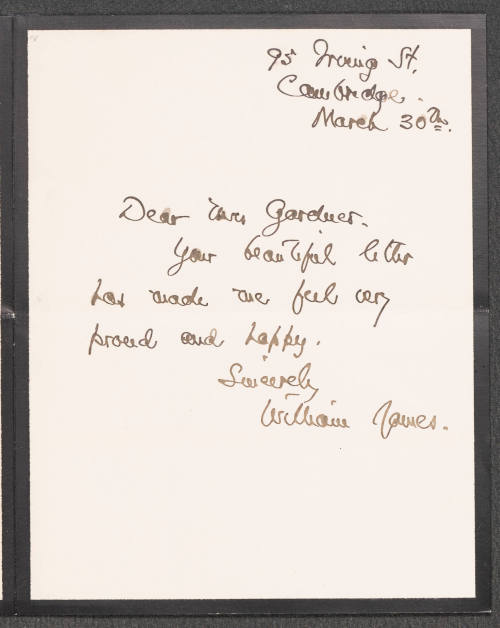 95 Irving St.
Cambridge.
March 30th.
Dear Mrs Gardner.
Your beautiful letter
has made me feel very
proud and happy.
Sincerely
William James.